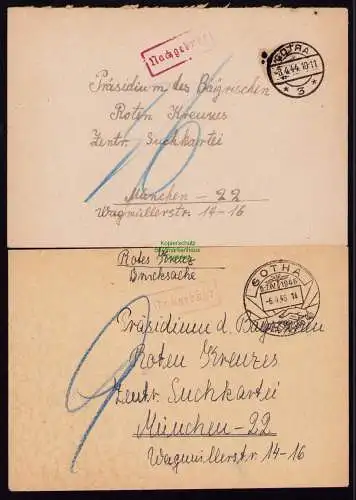 Nachgebühr
GOTHA
.4.44.10-11
* 3 *
Präsidium des Bayrischen
Roten Kreuzes
Zentr. Suchkartei
München - 22
Wagmüllerstr. 14-16
16
Kopierschutz
Briefmarkenhaus
Rotes Kreuz
Drucksache
Nachgebühr
GOTHA
1946
-6.4.46.14
Präsidium d. Bayrischen
Roten Kreuzes
Zentr. Suchkartei
München - 22
Wagmüllerstr. 14-16
9